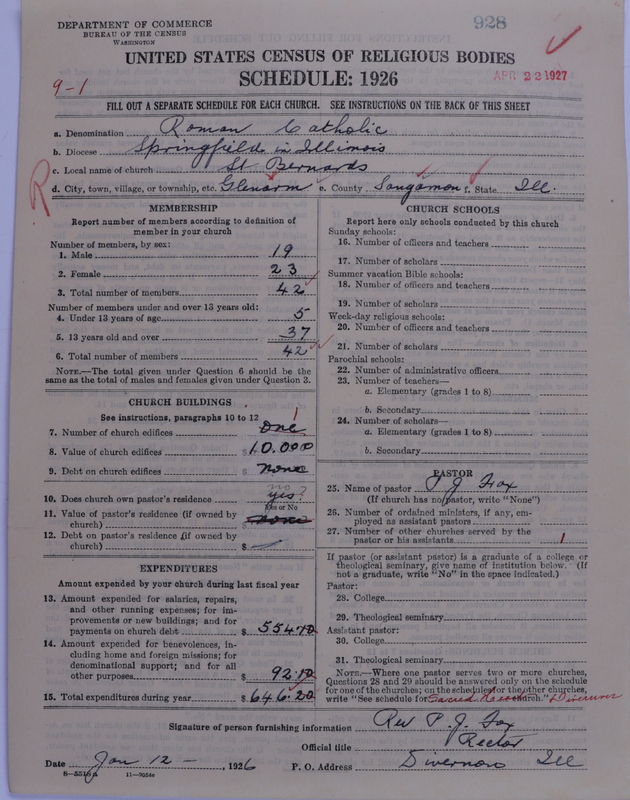 DEPARTMENT OF COMMERCE
BUREAU OF THE CENSUS
WASHINGTON
928
UNITED STATES CENSUS OF RELIGIOUS BODIES
SCHEDULE: 1926
APR 22 1927
9-1
FILL OUT A SEPARATE SCHEDULE FOR EACH CHURCH. SEE INSTRUCTIONS ON THE BACK OF THIS SHEET
a. Denomination Roman Catholic
b. Diocese Springfield in Illinois
c. Local name of church St Bernards
R
d. City, town, village, or township, etc. Glenarm e. County Sangamon f. State Ill.
MEMBERSHIP
Report number of members according to definition of
member in your church
Number of members, by sex:
1. Male 19
2. Female 23
3. Total number of members 42
Number of members under and over 13 years old:
4. Under 13 years of age 5
5. 13 years old and over 37
6. Total number of members 42
NOTE.—The total given under Question 6 should be
same as the total of males and females given under Question 3.
CHURCH BUILDINGS
See instructions, paragraphs 10 to 12
1
7. Number of church edifices One
8. Value of church edifices $10.000
9. Debt on church edifices none
no
10. Does church own pastor's residence yes?
Yes or No
11. Value of pastor's residence (if owned by
church) $ none
12. Debt on pastor's residence (if owned by
church) $
EXPENDITURES
Amount expended by your church during last fiscal year
13. Amount expended for salaries, repairs,
and other running expenses; for im-
provements or new buildings; and for
payments on church debt $ 554.10
14. Amount expended for benevolences, in-
cluding home and foreign missions; for
denominational support; and for all
other purposes $ 92.10
15. Total expenditures during year $ 646.20
CHURCH SCHOOLS
Report here only schools conducted by this church
Sunday schools:
16. Number of officers and teachers
17. Number of scholars
Summer vacation Bible schools:
18. Number of officers and teachers
19. Number of scholars
Week-day religious schools:
20. Number of officers and teachers
21. Number of scholars
Parochial schools:
22. Number of administrative officers
23. Number of teachers—
a. Elementary (grades 1 to 8)
b. Secondary
24. Number of scholars—
a. Elementary (grades 1 to 8)
b. Secondary
PASTOR
25. Name of pastor P J Fox
(If church has no pastor, write "None")
26. Number of ordained ministers, if any, em-
ployed as assistant pastors
27. Number of other churches served by the
pastor or his assistants 1
If pastor (or assistant pastor) is a graduate of a college or
theological seminary, give name of institution below. (If
not a graduate, write "No" in the space indicated.)
Pastor:
28. College
29. Theological seminary
Assistant pastor:
30. College
31. Theological seminary
NOTE.—Where one pastor serves two or more churches,
Questions 28 and 29 should be answered only on the schedule
for one of the churches; on the schedules for the other churches,
write "See schedule for Sacred Heart church." Divernon
Signature of person furnishing information Rev P. J. Fox
Official title Rector
Date Jan 12 —, 1926 P. O. Address Divernon Ill
8-5516a 11-9054e